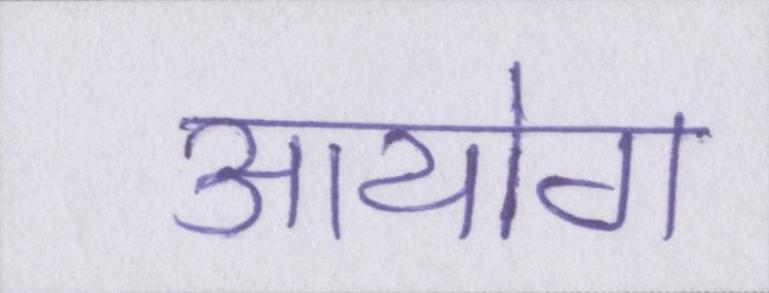 आयोग